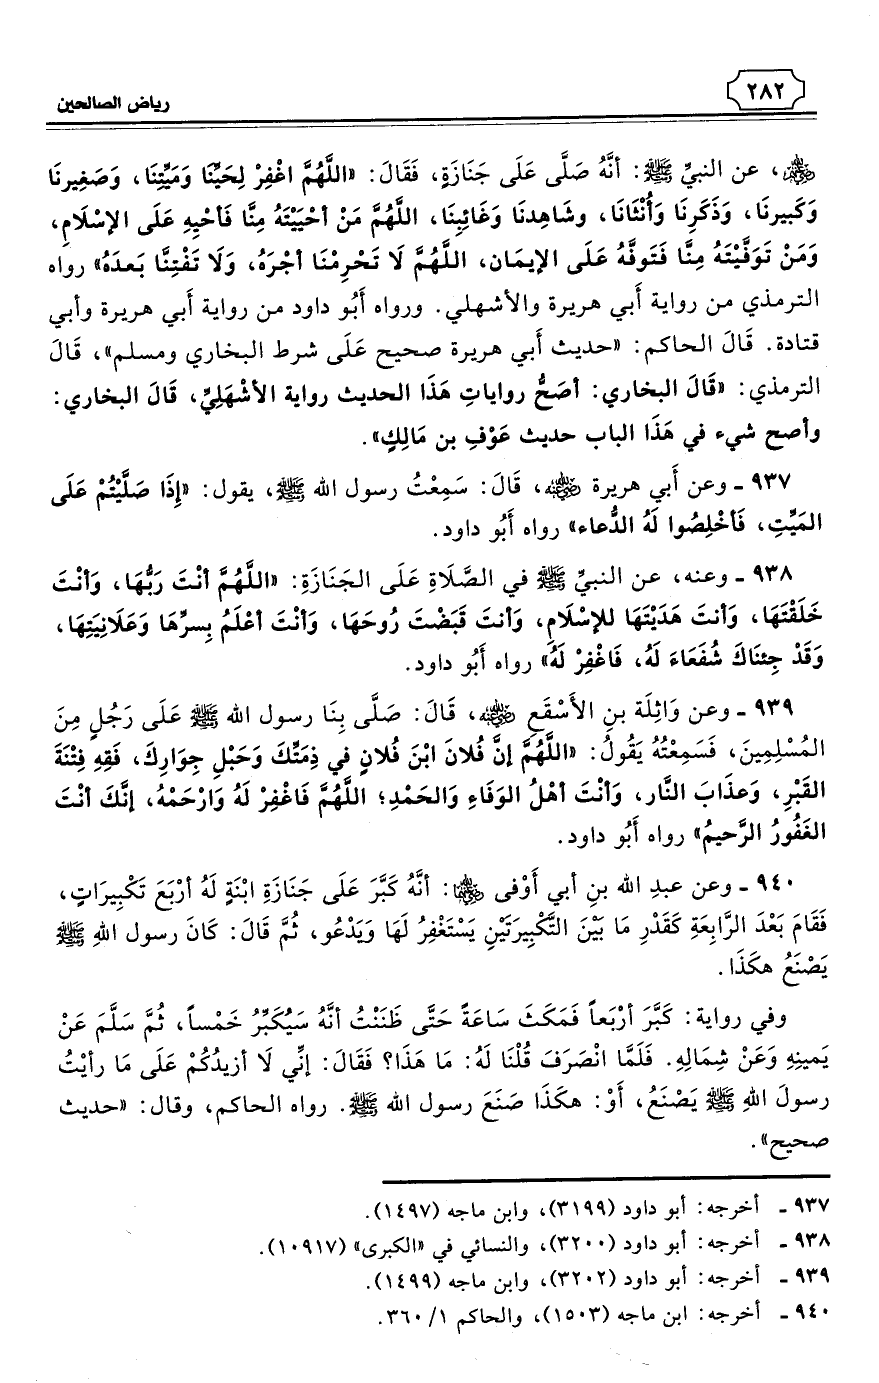 ٢٨٢
رياض الصالحين
رضي الله عنه، عن النبيِّ ﷺ: أنَّهُ صَلَّى عَلَى جَنَازَةٍ، فَقَالَ: «اللَّهُمَّ اغْفِرْ لِحَيِّنَا وَمَيِّتِنَا، وَصَغِيرنَا
وَكَبيرنَا، وَذَكَرِنَا وَأُنْثَانَا، وشَاهِدنَا وَغَائِبنَا، اللَّهُمَّ مَنْ أحْيَيْتَهُ مِنَّا فَأحْيِهِ عَلَى الإسْلَامِ،
وَمَنْ تَوَفَّيْتَهُ مِنَّا فَتَوفَّهُ عَلَى الإيمَان، اللَّهُمَّ لَا تَحْرِمْنَا أجْرَهُ، وَلَا تَفْتِنَّا بَعدَهُ» رواه
الترمذي من رواية أبي هريرة والأشهلي. ورواه أَبُو داود من رواية أبي هريرة وأبي
قتادة. قَالَ الحاكم: «حديث أَبي هريرة صحيح عَلَى شرط البخاري ومسلم»، قَالَ
الترمذي: «قَالَ البخاري: أصَحُّ رواياتِ هَذَا الحديث رواية الأشْهَلِيِّ، قَالَ البخاري:
وأصح شيء في هَذَا الباب حديث عَوْفِ بن مَالِكٍ».
٩٣٧ ـ وعن أَبي هريرة رضي الله عنه، قَالَ: سَمِعْتُ رسول الله ﷺ، يقول: «إِذَا صَلَّيْتُمْ عَلَى
المَيِّتِ، فَأخْلِصُوا لَهُ الدُّعاء» رواه أَبُو داود.
٩٣٨ ـ وعنه، عن النبيِّ ﷺ في الصَّلَاةِ عَلَى الجَنَازَةِ: «اللَّهُمَّ أنْتَ رَبُّهَا، وَأنْتَ
خَلَقْتَهَا، وَأنتَ هَدَيْتَهَا للإسْلَامِ، وَأنتَ قَبَضْتَ رُوحَهَا، وَأنْتَ أعْلَمُ بِسرِّهَا وَعَلَانِيَتِهَا،
وَقَدْ جِئنَاكَ شُفَعَاءَ لَهُ، فَاغْفِرْ لَهُ» رواه أَبُو داود.
٩٣٩ ـ وعن وَاثِلَة بنِ الأَسْقَعِ رضي الله عنه، قَالَ: صَلَّى بِنَا رسول الله ﷺ عَلَى رَجُلٍ مِنَ
المُسْلِمِينَ، فَسَمِعْتُهُ يَقُولُ: «اللَّهُمَّ إنَّ فُلانَ ابْنَ فُلانٍ في ذِمَتِّكَ وَحَبْلِ جِوَارِكَ، فَقِهِ فِتْنَةَ
القَبْرِ، وَعذَابَ النَّار، وَأنْتَ أهْلُ الوَفَاءِ وَالحَمْدِ؛ اللَّهُمَّ فَاغْفِرْ لَهُ وَارْحَمْهُ، إنَّكَ أنْتَ
الغَفُورُ الرَّحيمُ» رواه أَبُو داود.
٩٤٠ ـ وعن عبدِ الله بنِ أبي أَوْفى رضي الله عنهما: أنَّهُ كَبَّرَ عَلَى جَنَازَةِ ابْنَةٍ لَهُ أرْبَعَ تَكْبِيرَاتٍ،
فَقَامَ بَعْدَ الرَّابِعَةِ كَقَدْرِ مَا بَيْنَ التَّكْبِيرَتَيْنِ يَسْتَغْفِرُ لَهَا وَيَدْعُو، ثُمَّ قَالَ: كَانَ رسول اللهِ ﷺ
يَصْنَعُ هكَذَا.
وفي رواية: كَبَّرَ أرْبَعاً فَمَكَثَ سَاعَةً حَتَّى ظَنَنْتُ أنَّهُ سَيُكَبِّرُ خَمْساً، ثُمَّ سَلَّمَ عَنْ
يَمينِهِ وَعَنْ شِمَالِهِ. فَلَمَّا انْصَرَفَ قُلْنَا لَهُ: مَا هَذَا؟ فَقَالَ: إنِّي لَا أزيدُكُمْ عَلَى مَا رأيْتُ
رسولَ اللهِ ﷺ يَصْنَعُ، أَوْ: هكَذَا صَنَعَ رسول الله ﷺ. رواه الحاكم، وقال: «حديث
صحيح».
٩٣٧ ـ أخرجه: أبو داود (٣١٩٩)، وابن ماجه (١٤٩٧).
٩٣٨ ـ أخرجه: أبو داود (٣٢٠٠)، والنسائي في «الكبرى» (١٠٩١٧).
٩٣٩ ـ أخرجه: أبو داود (٣٢٠٢)، وابن ماجه (١٤٩٩).
٩٤٠ ـ أخرجه: ابن ماجه (١٥٠٣)، والحاكم ١/ ٣٦٠.